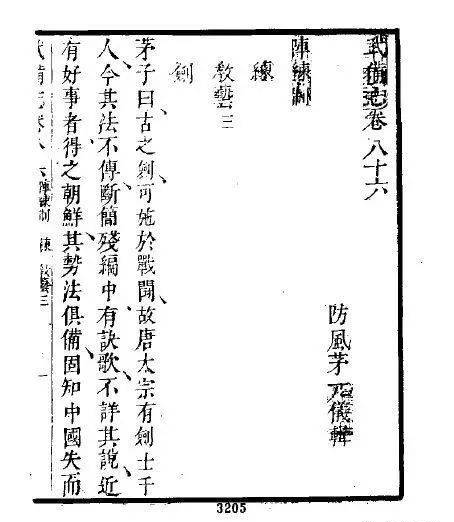 武備志卷八十六
防風茅元儀輯
陣練制
練
教藝三
劍
茅子曰古之劍可施於戰鬬故唐太宗有劍士千
人今其法不傳斷簡殘編中有訣歌不詳其說近
有好事者得之朝鮮其勢法俱備固知中國失而
武備志卷八十六 陣練制 練 教藝三 一
3205